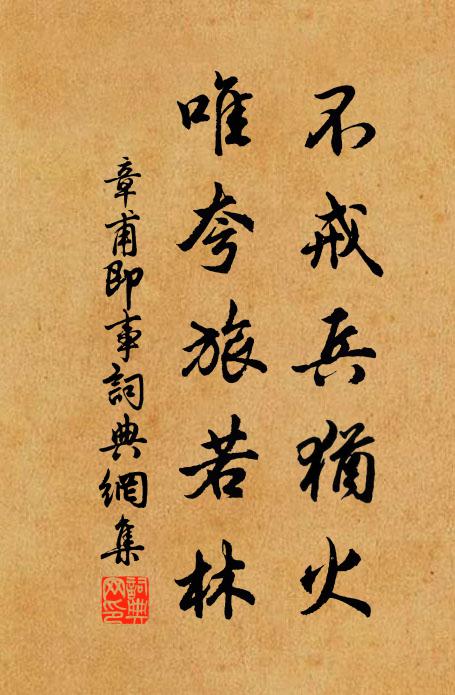 不戒兵猶火
唯夸旅若林
章甫即事詞典網集
詞典網印